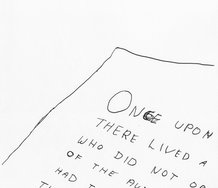 ONCE UPON
THERE LIVED A
WHO DID NOT
OF THE
HAD